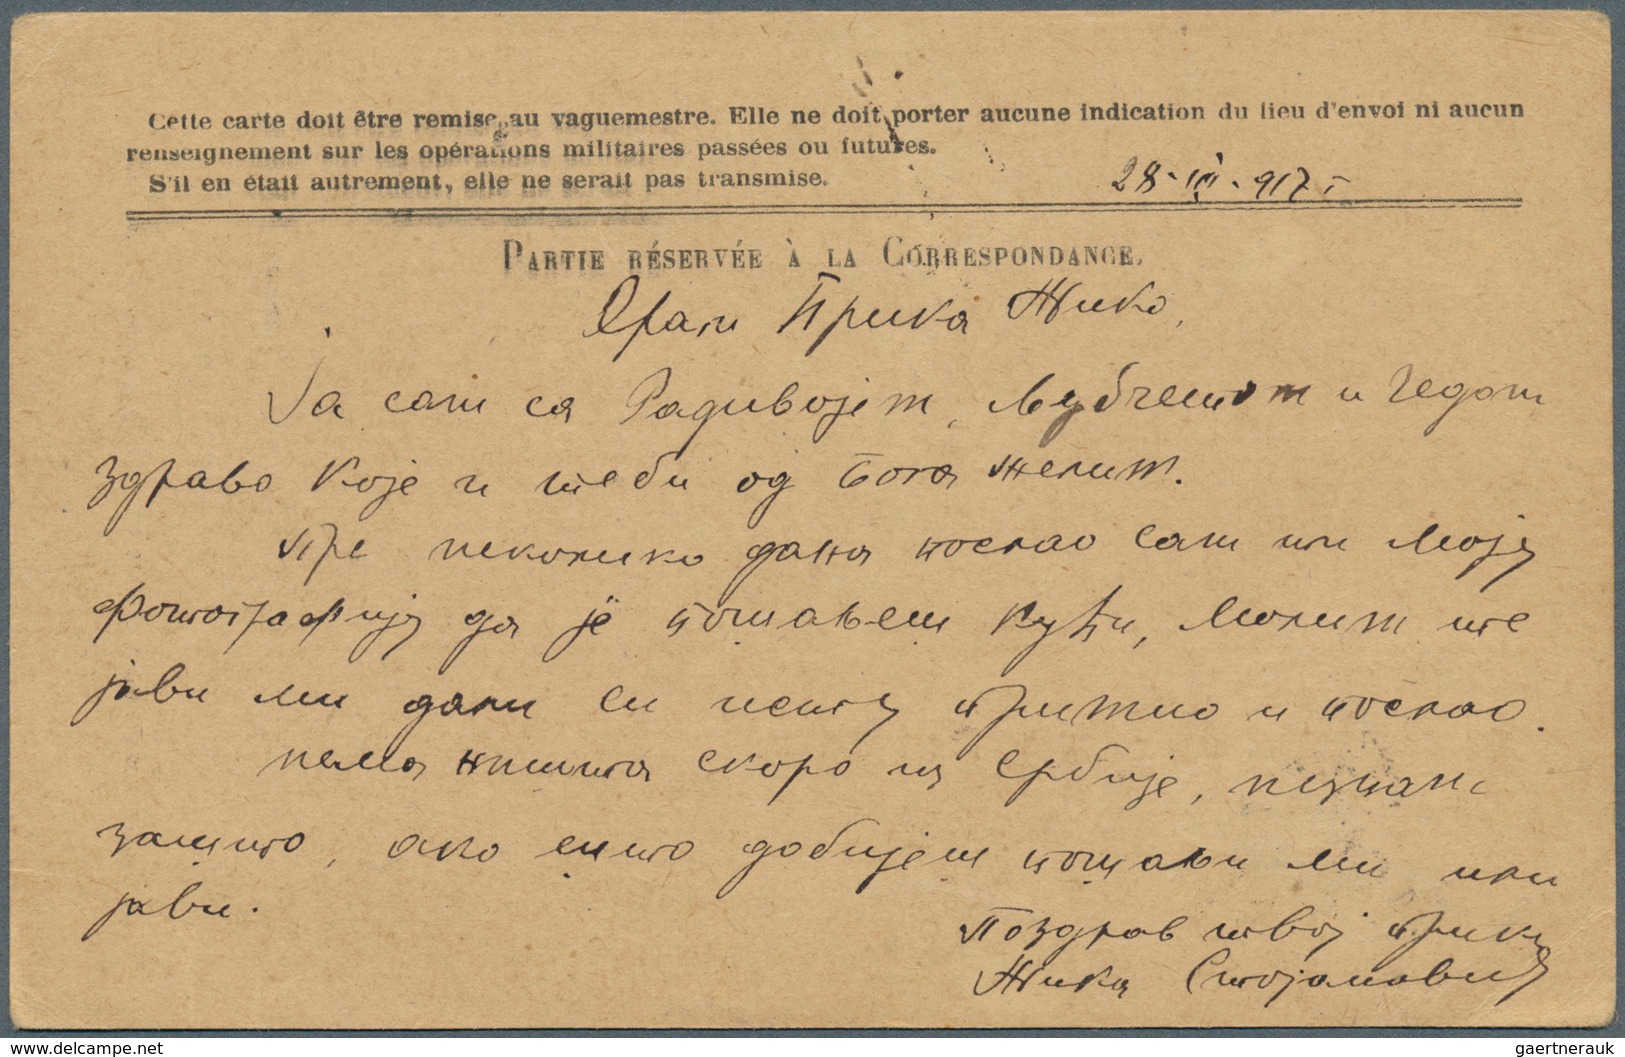 Cette carte doit être remise au vaguemestre. Elle ne doit porter aucune indication du lieu d'envoi ni aucun
renseignement sur les opérations militaires passées ou futures.
S'il en était autrement, elle ne serait pas transmise.
28-III-917
PARTIE RÉSERVÉE À LA CORRESPONDANCE.
Драги Прика Жико,
Ја сам са Радивојем, Љубчетом и Чедом
здраво које и теби од Бога желим.
Пре неколико дана послао сам ти моју
фотографију да је пошаљеш кући, молим те
јави ми дали си исту примио и послао.
нема ништа скоро из Србије, незнам
зашто, ако што добијеш пошаљи ми или
јави.
Поздрав твој прика
Жика Стојановић
delcampe.net
gaertnerauk